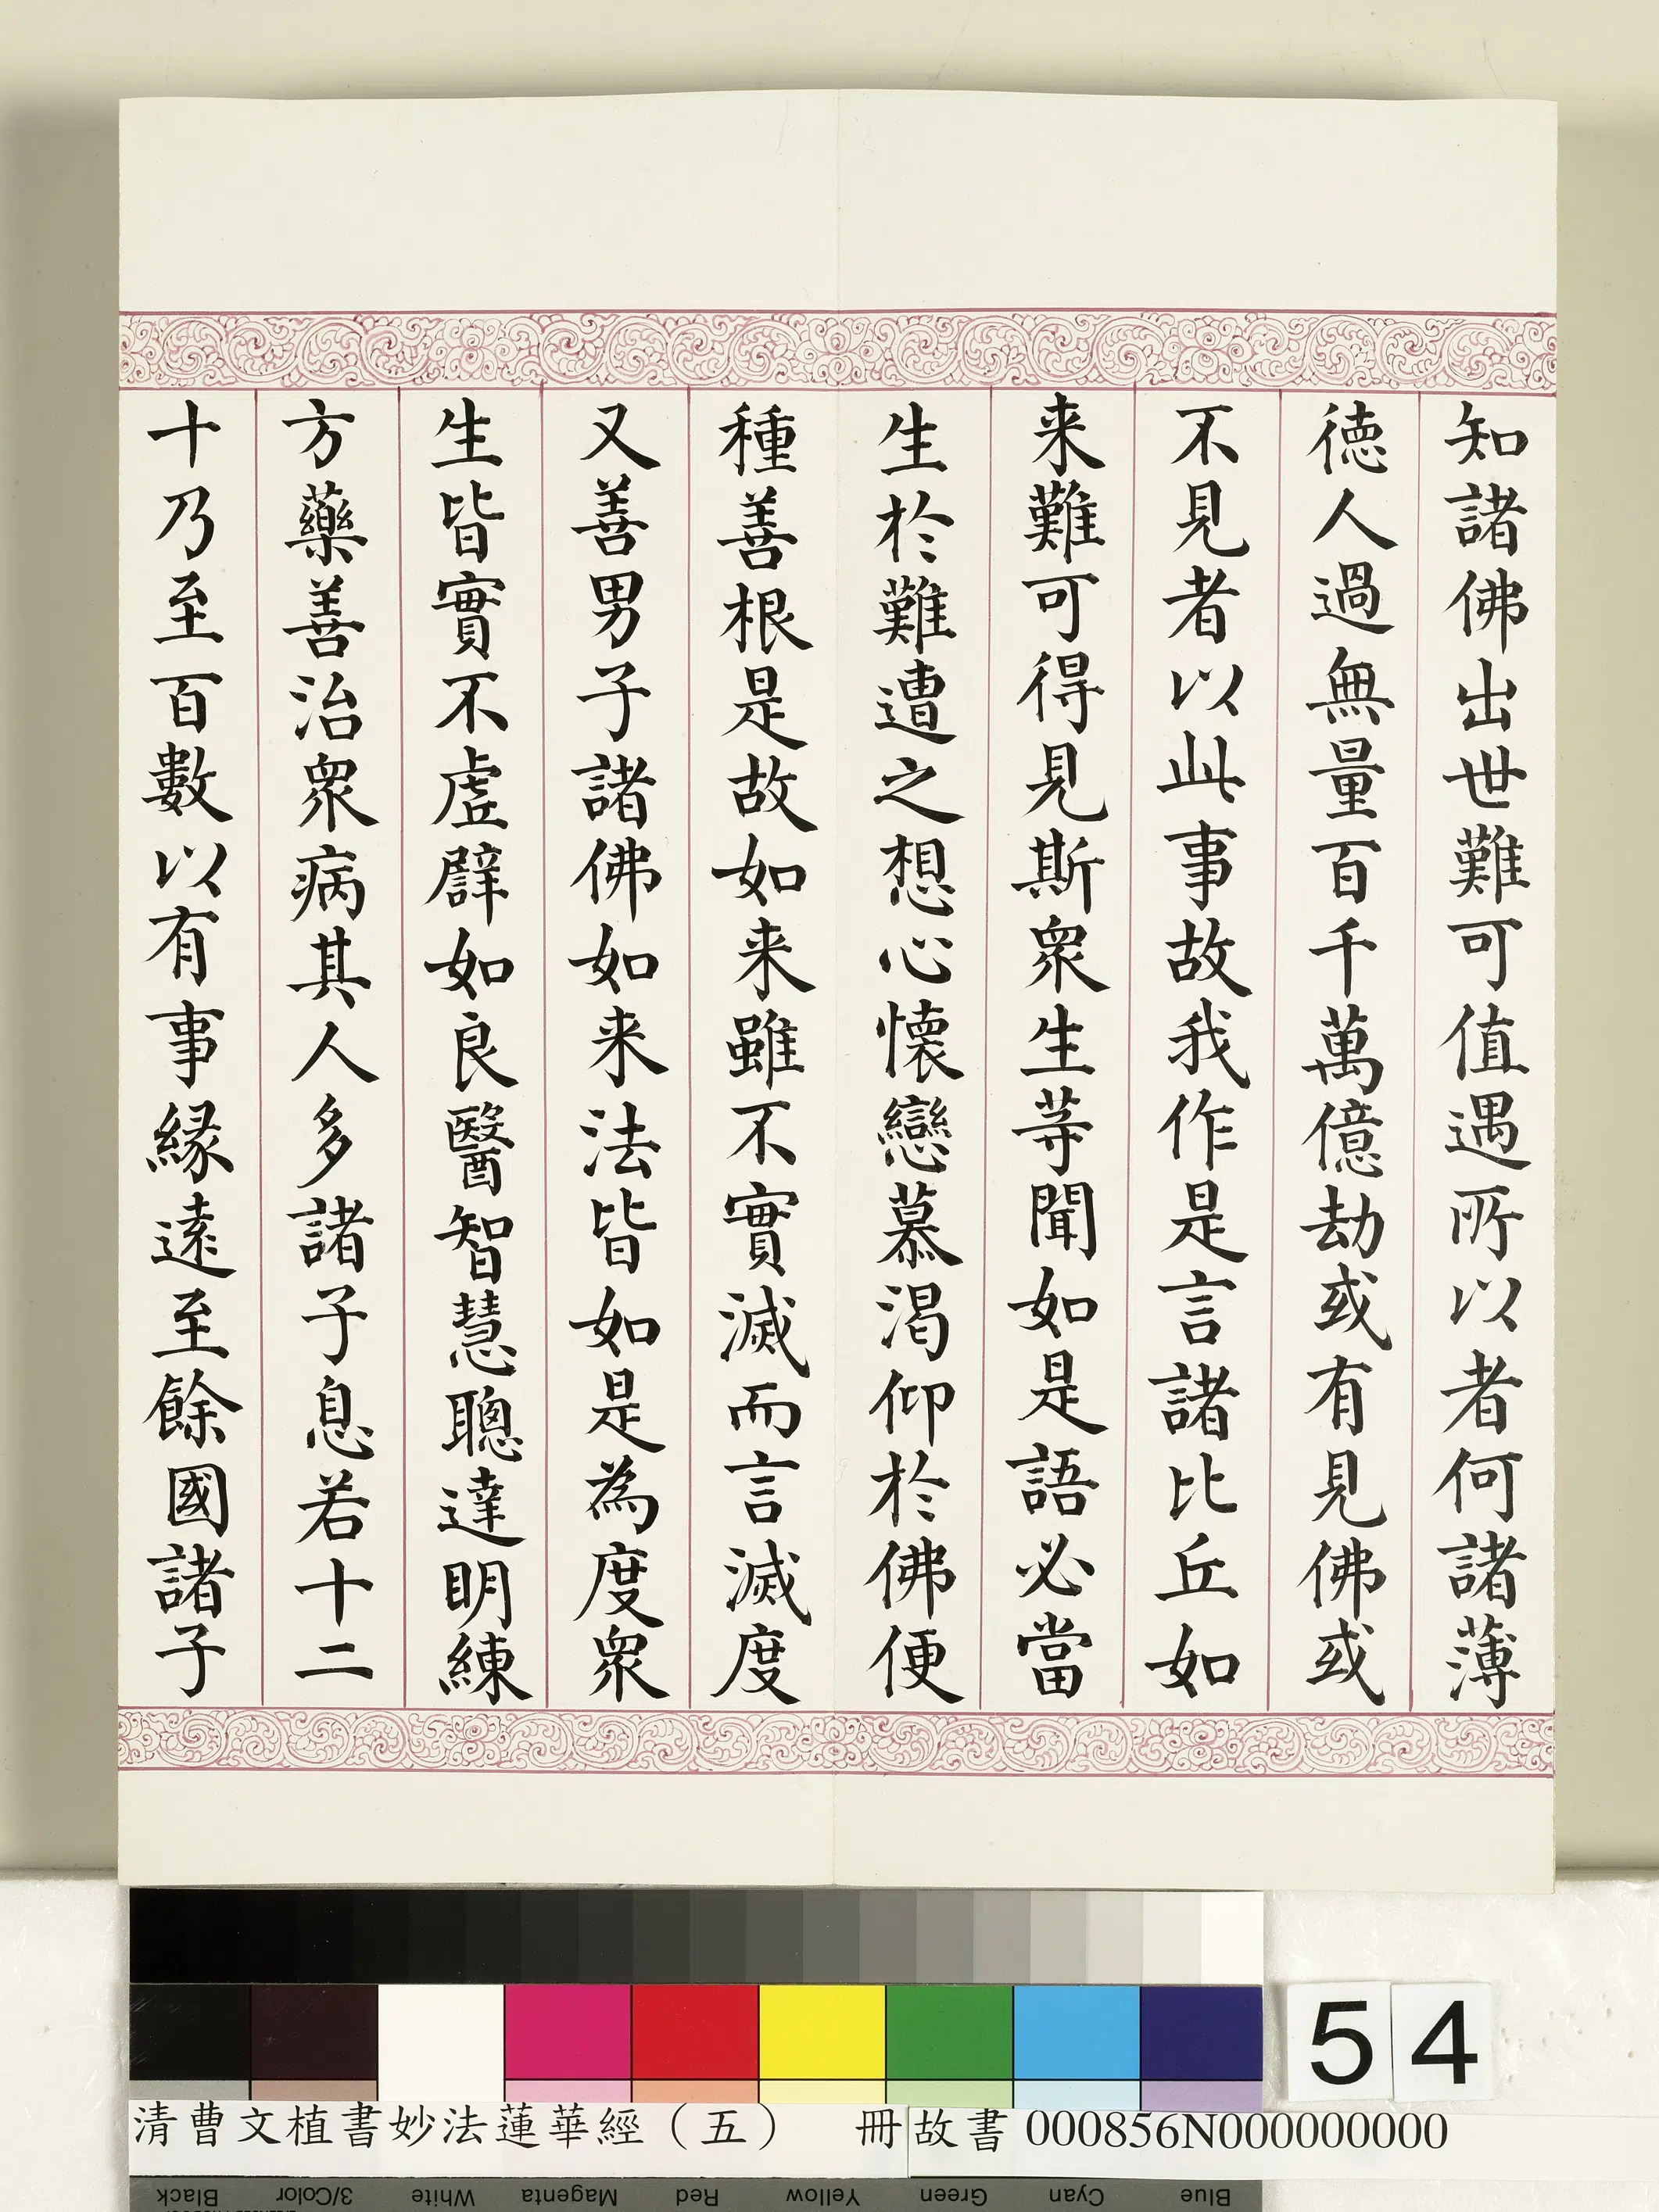 知諸佛出世難可值遇所以者何諸薄
徳人過無量百千萬億劫或有見佛或
不見者以此事故我作是言諸比丘如
来難可得見斯衆生等聞如是語必當
生於難遭之想心懷戀慕渴仰於佛便
種善根是故如来雖不實滅而言滅度
又善男子諸佛如来法皆如是為度衆
生皆實不虛辟如良醫智慧聰達明練
方藥善治衆病其人多諸子息若十二
十乃至百數以有事緣遠至餘國諸子
54
清曹文植書妙法蓮華經（五） 冊 故書 000856N000000000
Black 3/Color White Magenta Red Yellow Green Cyan Blue